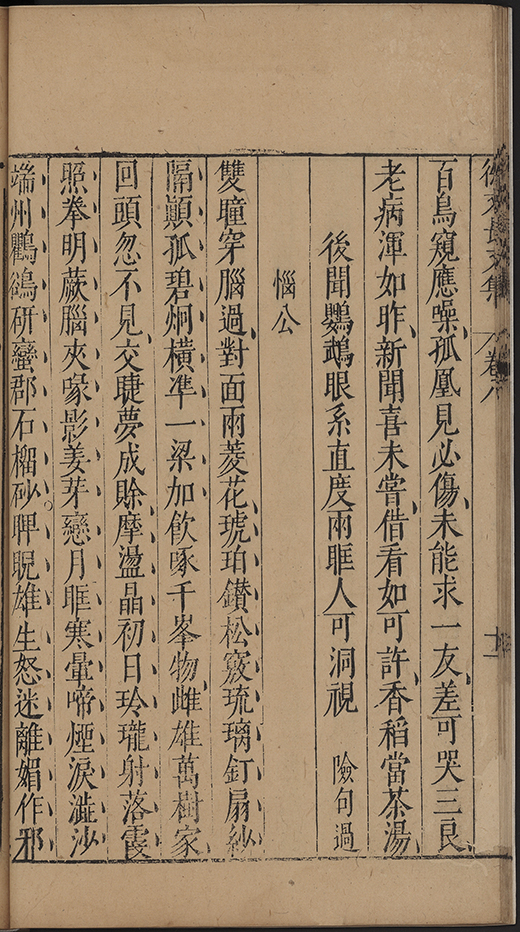 徐文長文集 卷八 十一
百鳥窺應噪孤凰見必傷未能求一友差可哭三良
老病渾如昨新聞喜未嘗借看如可許香稻當茶湯
後聞鸚鵡眼系直度兩眶人可洞視 險句過
惱公
雙瞳穿腦過對面兩菱花琥珀鑚松竅琉璃釘扇紗
隔顛孤碧炯橫凖一梁加飲啄千峯物雌雄萬樹家
回頭忽不見交睫夢成賖摩盪晶初日玲瓏射落霞
照拳明蕨腦夾喙影姜芽戀月眶寒暈啼煙淚澁沙
端州鸜鵒硏蠻郡石榴砂睥睨雄生怒迷離媚作邪